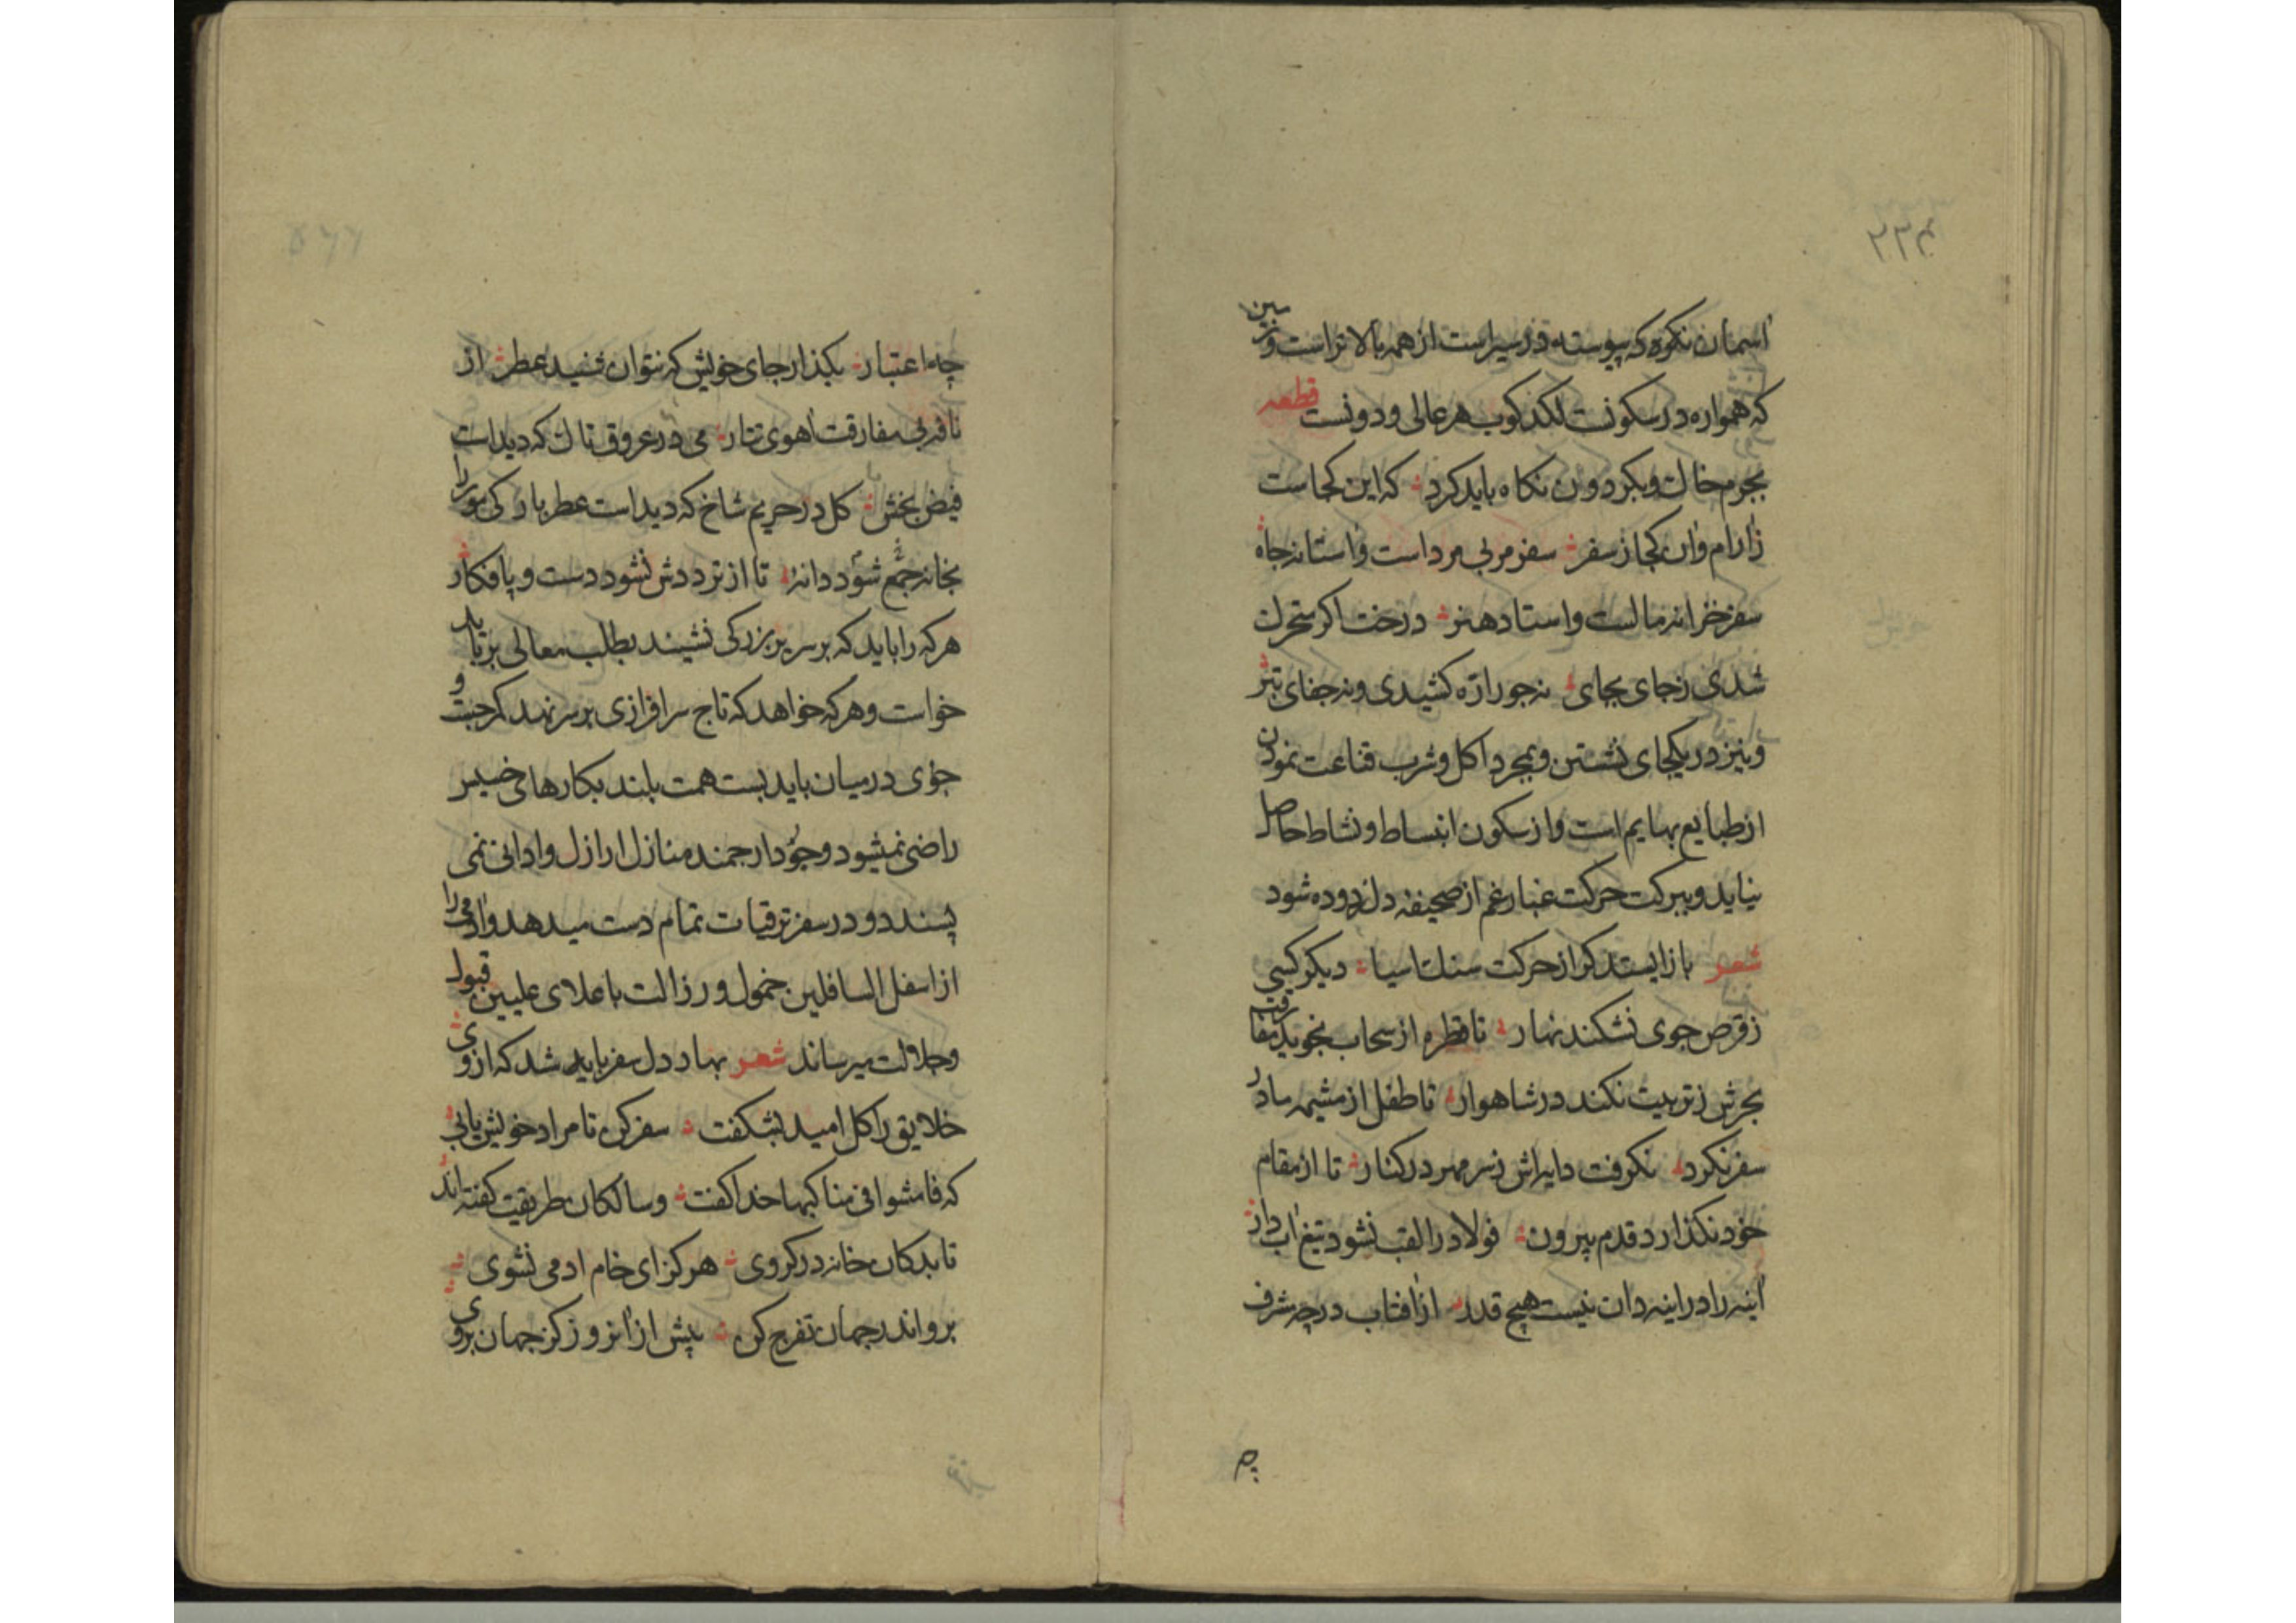 ۲۲۴
اسمان نکوه که پیوسته در سیراست از همه بالا تراست و زمین
که همواره در سکونست لکدکوب هر عالی و دونست قطعه
بجرم خاك و بکردون نکاه باید کرد که این کجاست
زارام وان کجا ز سفر سفر مربی مرداست واستانه جاه
سفر خزانه مالست واستاد هنر درخت اکر متحرك
شدی ز جای بجای نه جور ارّه کشیدی و نه جفای تبر
ونیز در یکجای نشستن و بمجرد اکل و شرب قناعت نمودن
از طبایع بهایم است و از سکون انبساط و نشاط حاصل
نیاید و ببرکت حرکت غبار غم از صحیفه دل زدوده شود
شعر باز ایستد کر از حرکت سنك اسیا دیکر کسی
ز قرص جوی نشکند نهار تا قطره از سحاب نجوید مفارقت
بحرش ز تربیت نکند در شاهوار تا طفل از مشیمه مادر
سفر نکرد نکرفت دایه اش ز سر مهر در کنار تا از مقام
خود نکذارد قدم بیرون فولاد را لقب نشود تیغ ابدار
اینه را در اینه دان نیست هیچ قدر از افتاب در چه شرف
چه
چه اعتبار بکذار جای خویش که نتوان شنید عطر از
نافه بی مفارقت اهوی تتار می در عروق تاك که دیداست
فیض بخش کل در حریم شاخ که دیداست عطر بار کی مور را
بخانه جمع شود دانه تا از ترددش نشود دست و پا فکار
هر که را باید که بر سریر بزرکی نشیند بطلب معالی بر تابد
خواست و هر که خواهد که تاج سرافرازی بر سر نهد کمر جست و
جوی در میان باید بست همت بلند بکارهای خسیس
راضی نمیشود و جود ارجمند منازل ارازل و ادانی نمی
پسندد و در سفر ترقیات تمام دست میدهد وادمی را
از اسفل السافلین خمول و رزالت باعلای علیین قبول
و جلالت میرساند شعر بهاد دل سفر باید شد که از وی
خلایق را کل امید بشکفت سفر کن تا مراد خویش یابی
که فامشوا فی مناکبها خدا کفت و سالکان طریقت کفته اند
تا بدکان خانه در کروی هرکز ای خام ادمی نشوی
برو اندر جهان تفرج کن پیش از انروز کز جهان بروی